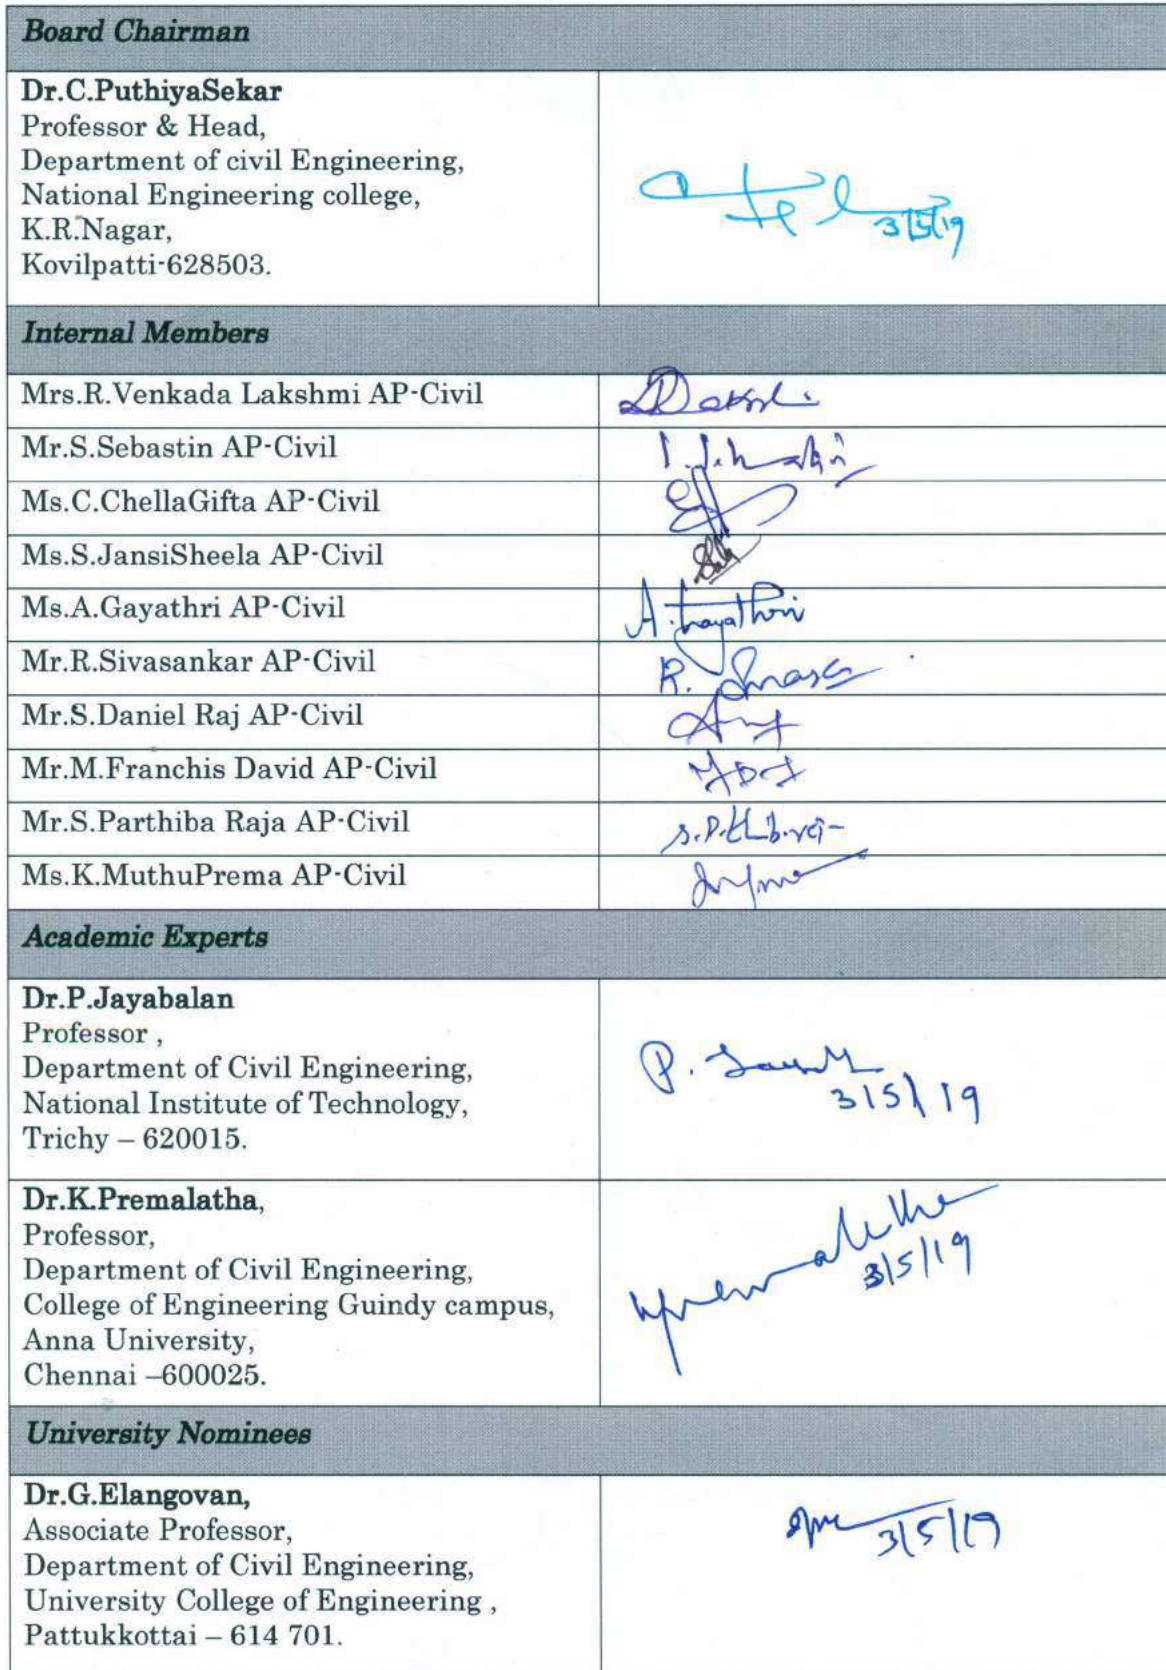 Board Chairman
Dr.C.PuthiyaSekar
Professor & Head,
Department of civil Engineering,
National Engineering college,
K.R.Nagar,
Kovilpatti-628503.
3/5/19
Internal Members
Mrs.R.Venkada Lakshmi AP-Civil
Mr.S.Sebastin AP-Civil
Ms.C.ChellaGifta AP-Civil
Ms.S.JansiSheela AP-Civil
Ms.A.Gayathri AP-Civil
A.Gayathri
Mr.R.Sivasankar AP-Civil
Mr.S.Daniel Raj AP-Civil
Mr.M.Franchis David AP-Civil
Mr.S.Parthiba Raja AP-Civil
Ms.K.MuthuPrema AP-Civil
Academic Experts
Dr.P.Jayabalan
Professor ,
Department of Civil Engineering,
National Institute of Technology,
Trichy – 620015.
3/5/19
Dr.K.Premalatha,
Professor,
Department of Civil Engineering,
College of Engineering Guindy campus,
Anna University,
Chennai –600025.
3/5/19
University Nominees
Dr.G.Elangovan,
Associate Professor,
Department of Civil Engineering,
University College of Engineering ,
Pattukkottai – 614 701.
3/5/19